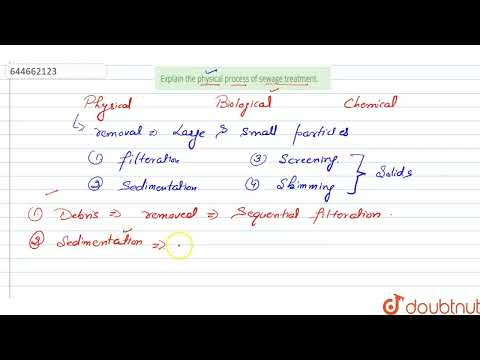 644662123
Explain the physical process of sewage treatment.
Physical Biological Chemical
↳ removal ⇒ Large & small particles
(1) filteration (3) Screening
(2) Sedimentation (4) Skimming } Solids
(1) Debris ⇒ removed ⇒ Sequential filteration.
(2) Sedimentation ⇒
doubtnut